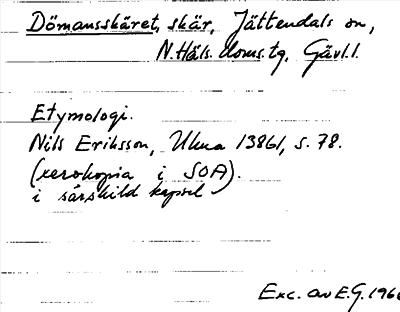 Dömansskäret, skär, Jättendals sn,
N. Häls. doms.tg, Gävl.l.
Etymologi.
Nils Eriksson, Uluma 13861, s. 78.
(xerokopia i SOA).
i särskild kapsel
Exc. av E.G. 196